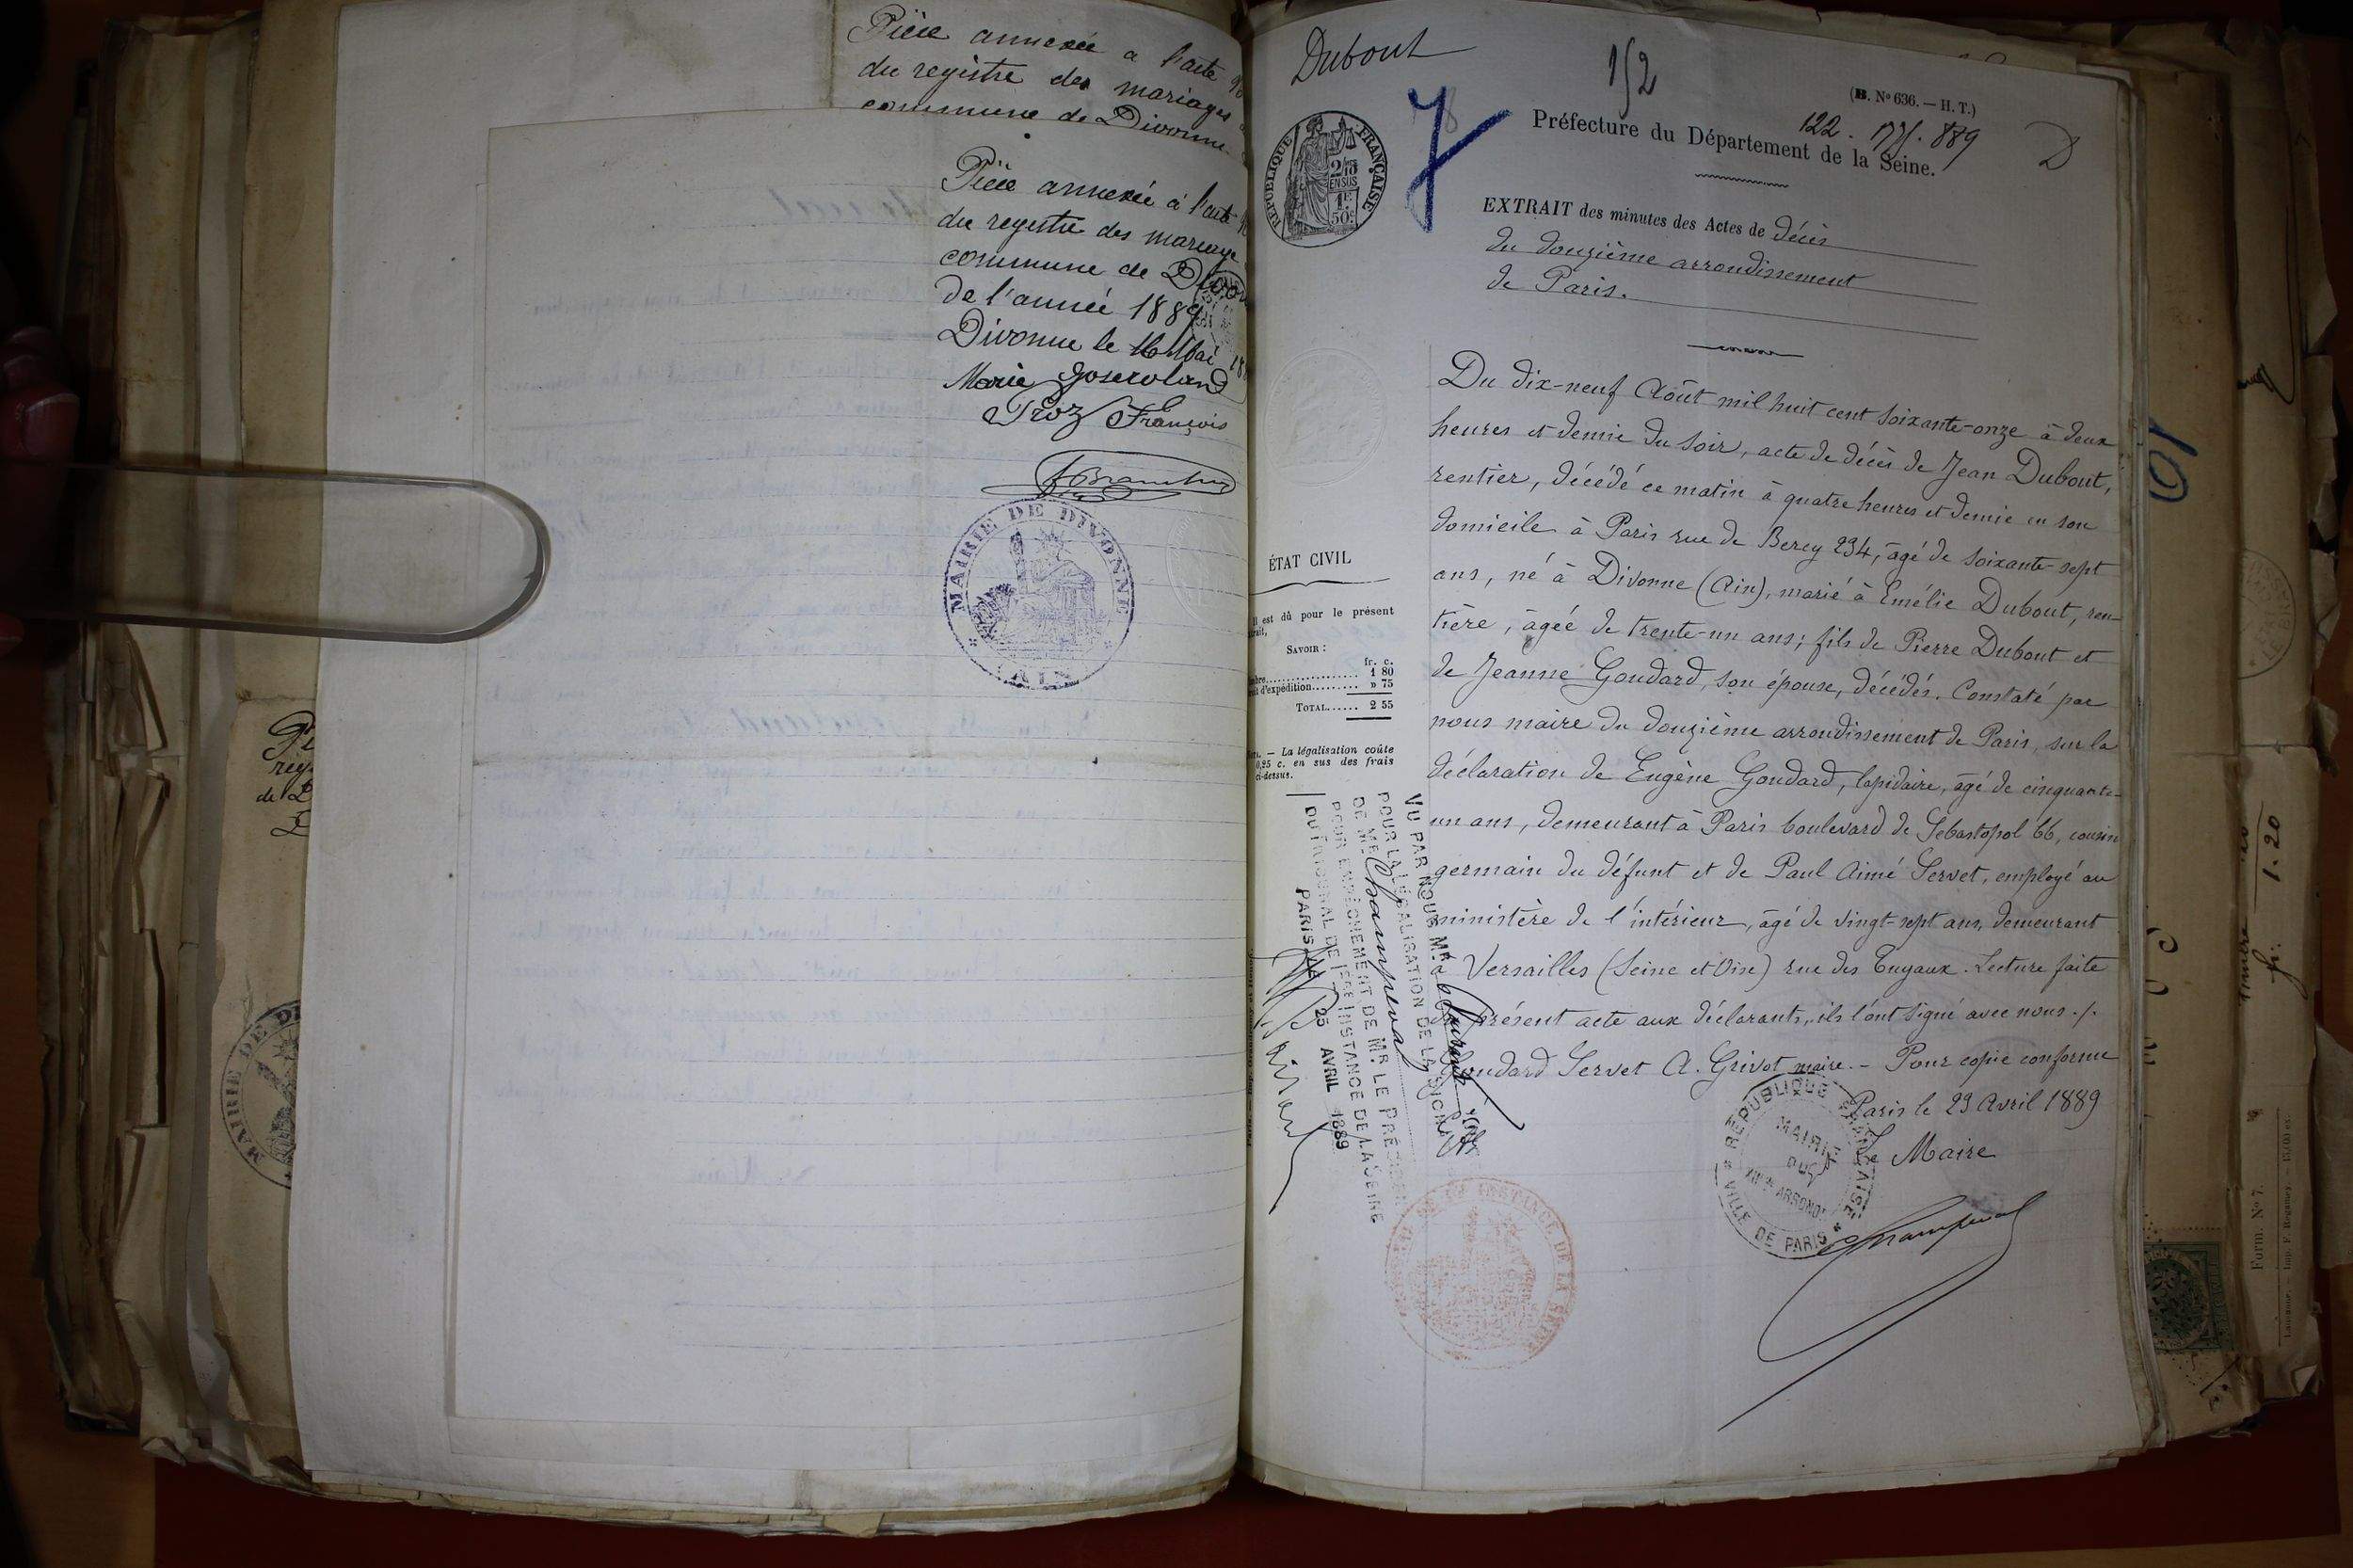 Pièce annexée a l'acte
du registre des mariages
commune de Divonne
Pièce annexée à l'acte
du registre des mariage
commune de
de l'année 1889
Divonne le 16 Mai
Marie
Proz François
MAIRIE DE DIVONNE
AIN
MAIRIE DE
Dubout
152
(B. No 636. — H. T.)
122
889
D
Préfecture du Département de la Seine.
REPUBLIQUE FRANÇAISE
2/10
EN SUS
1F
50c
EXTRAIT des minutes des Actes de décès
du douzième arrondissement
de Paris.
Du dix-neuf Août mil huit cent soixante-onze à deux
heures et demie du soir, acte de décès de Jean Dubout,
rentier, décédé ce matin à quatre heures et demie en son
domicile à Paris rue de Bercy 234, âgé de soixante-sept
ans, né à Divonne (Ain), marié à Emélie Dubout, ren-
tière, âgée de trente-un ans; fils de Pierre Dubout et
de Jeanne Goudard, son épouse, décédés. Constaté par
nous maire du douzième arrondissement de Paris, sur la
déclaration de Eugène Goudard, lapidaire, âgé de cinquante-
un ans, demeurant à Paris boulevard de Sébastopol 66, cousin
germain du défunt et de Paul Aimé Servet, employé au
ministère de l'intérieur, âgé de vingt-sept ans, demeurant
à Versailles (Seine et Oise) rue des Tuyaux. Lecture faite
du présent acte aux déclarants, ils l'ont signé avec nous ./.
Goudard Servet A. Grivot maire. — Pour copie conforme
Paris le 23 Avril 1889
Le Maire
REPUBLIQUE FRANÇAISE
MAIRIE
DU
XIIme ARRONDT
VILLE DE PARIS
ÉTAT CIVIL
Il est dû pour le présent
SAVOIR :
fr. c.
1 80
d'expédition......... » 75
TOTAL...... 2 55
— La légalisation coûte
0,25 c. en sus des frais
ci-dessus.
VU PAR NOUS MR
POUR LA LÉGALISATION DE LA SIGNATURE
DE MR Champeval
POUR EMPÊCHEMENT DE MR LE PRÉSIDENT
DU TRIBUNAL DE 1ERE INSTANCE DE LA SEINE
PARIS, LE 25 AVRIL 1889
INSTANCE DE LA SEINE
10
1.20
Form. No 7.